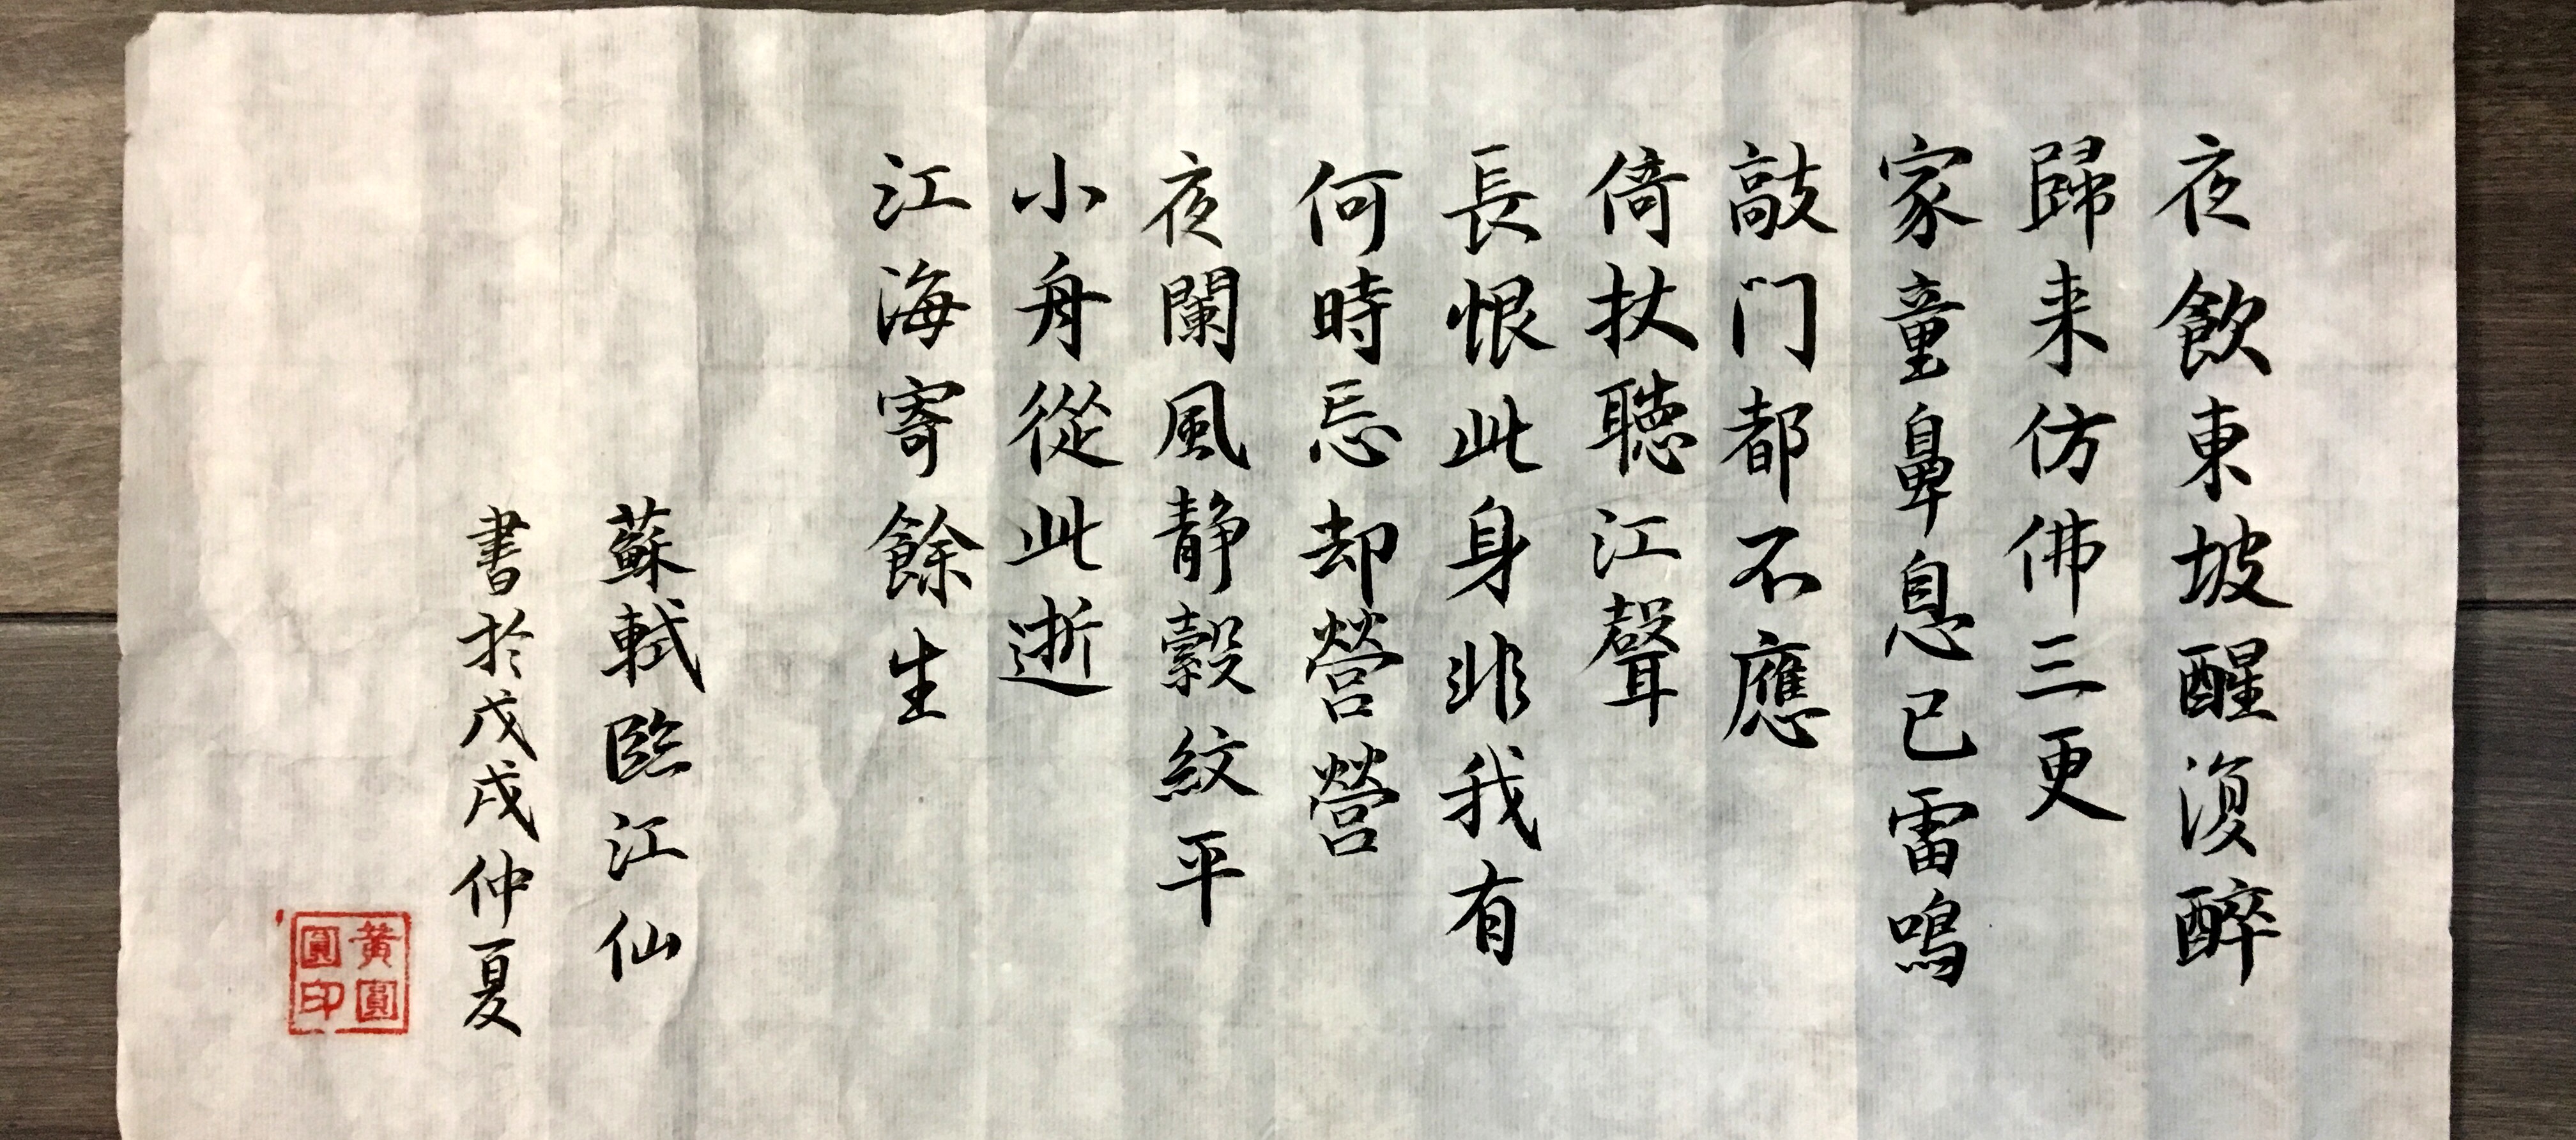 夜飲東坡醒復醉
歸来仿佛三更
家童鼻息已雷鳴
敲门都不應
倚杖聽江聲
長恨此身非我有
何時忘却營營
夜闌風静縠紋平
小舟從此逝
江海寄餘生
蘇軾臨江仙
書於戊戌仲夏
黃圓圓印